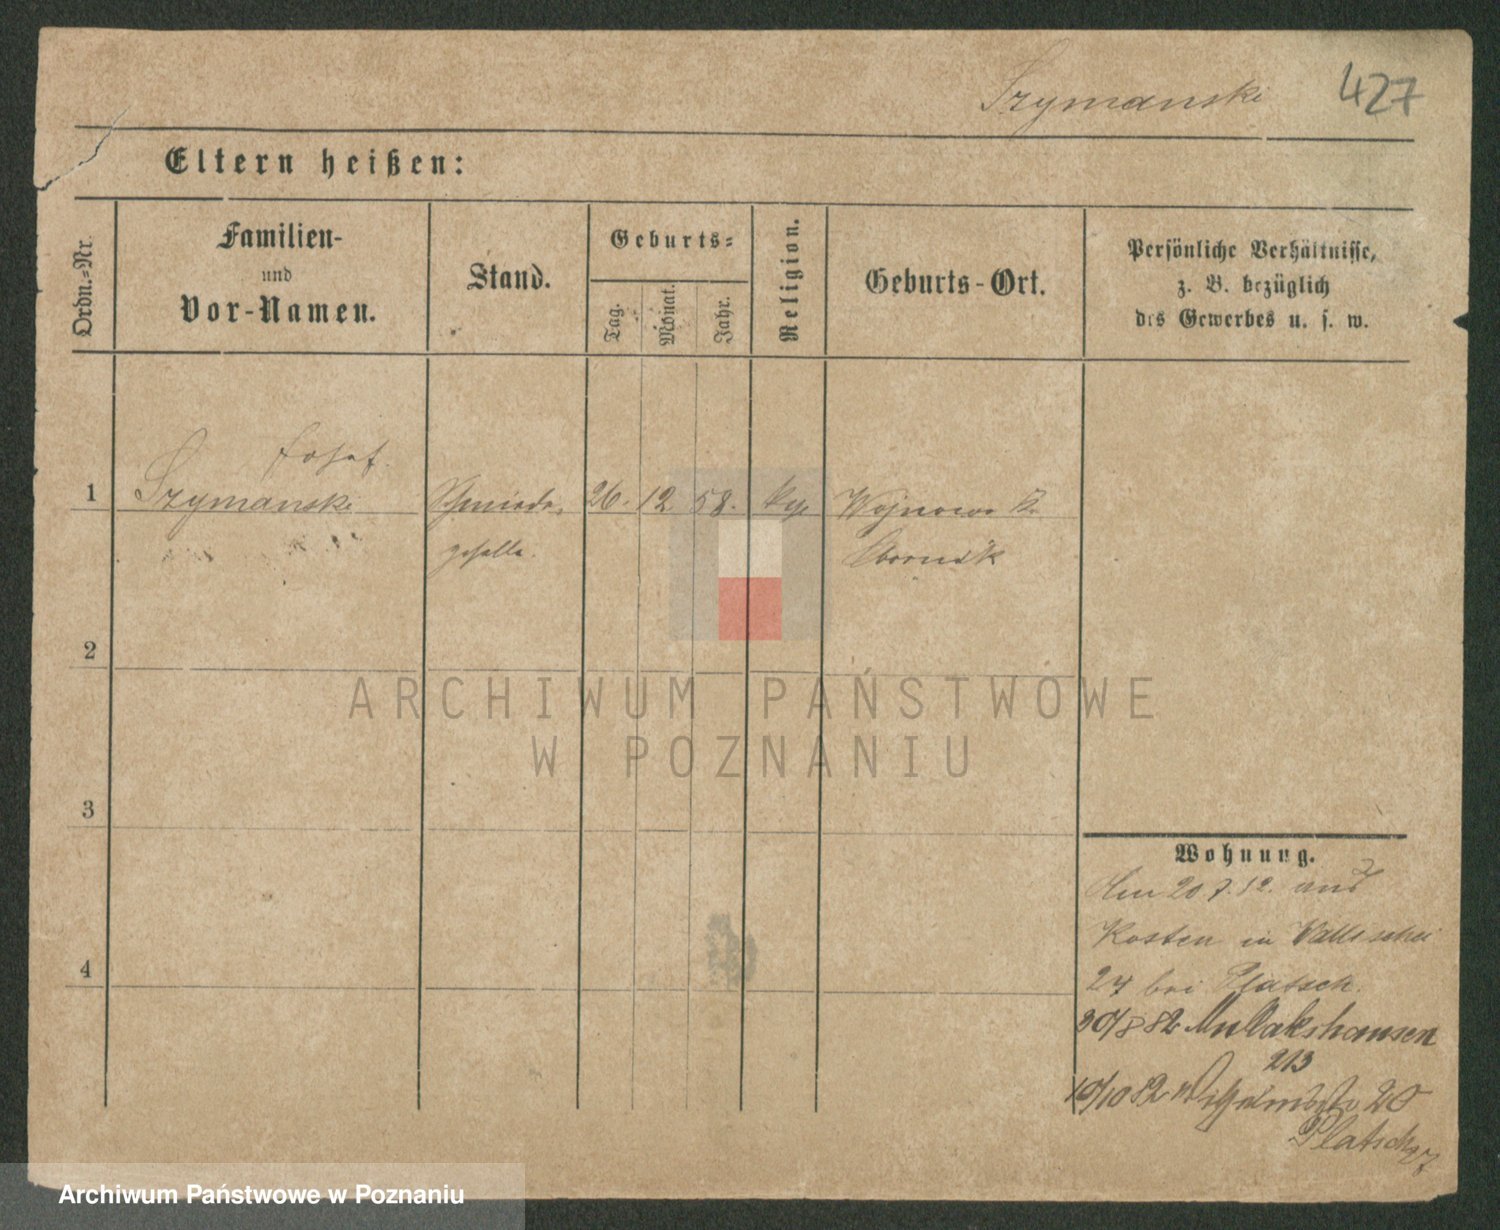 Szymanski 427
Eltern heißen:
Ordn.-Nr.
Familien-
und
Vor-Namen.
Stand.
Geburts-
Tag.
Monat.
Jahr.
Religion.
Geburts-Ort.
Persönliche Verhältnisse,
z. B. bezüglich
des Gewerbes u. s. w.
Josef.
1 Szymanski Schmiede 26. 12 58. Wojnowo
geselle. Obornik
2
ARCHIWUM PAŃSTWOWE
W POZNANIU
3
Wohnung.
20.7. aus
Kosten in Wallischei
4
24 bei Platsch.
30/8 82
213
10/10 82 20
Platsch
Archiwum Państwowe w Poznaniu